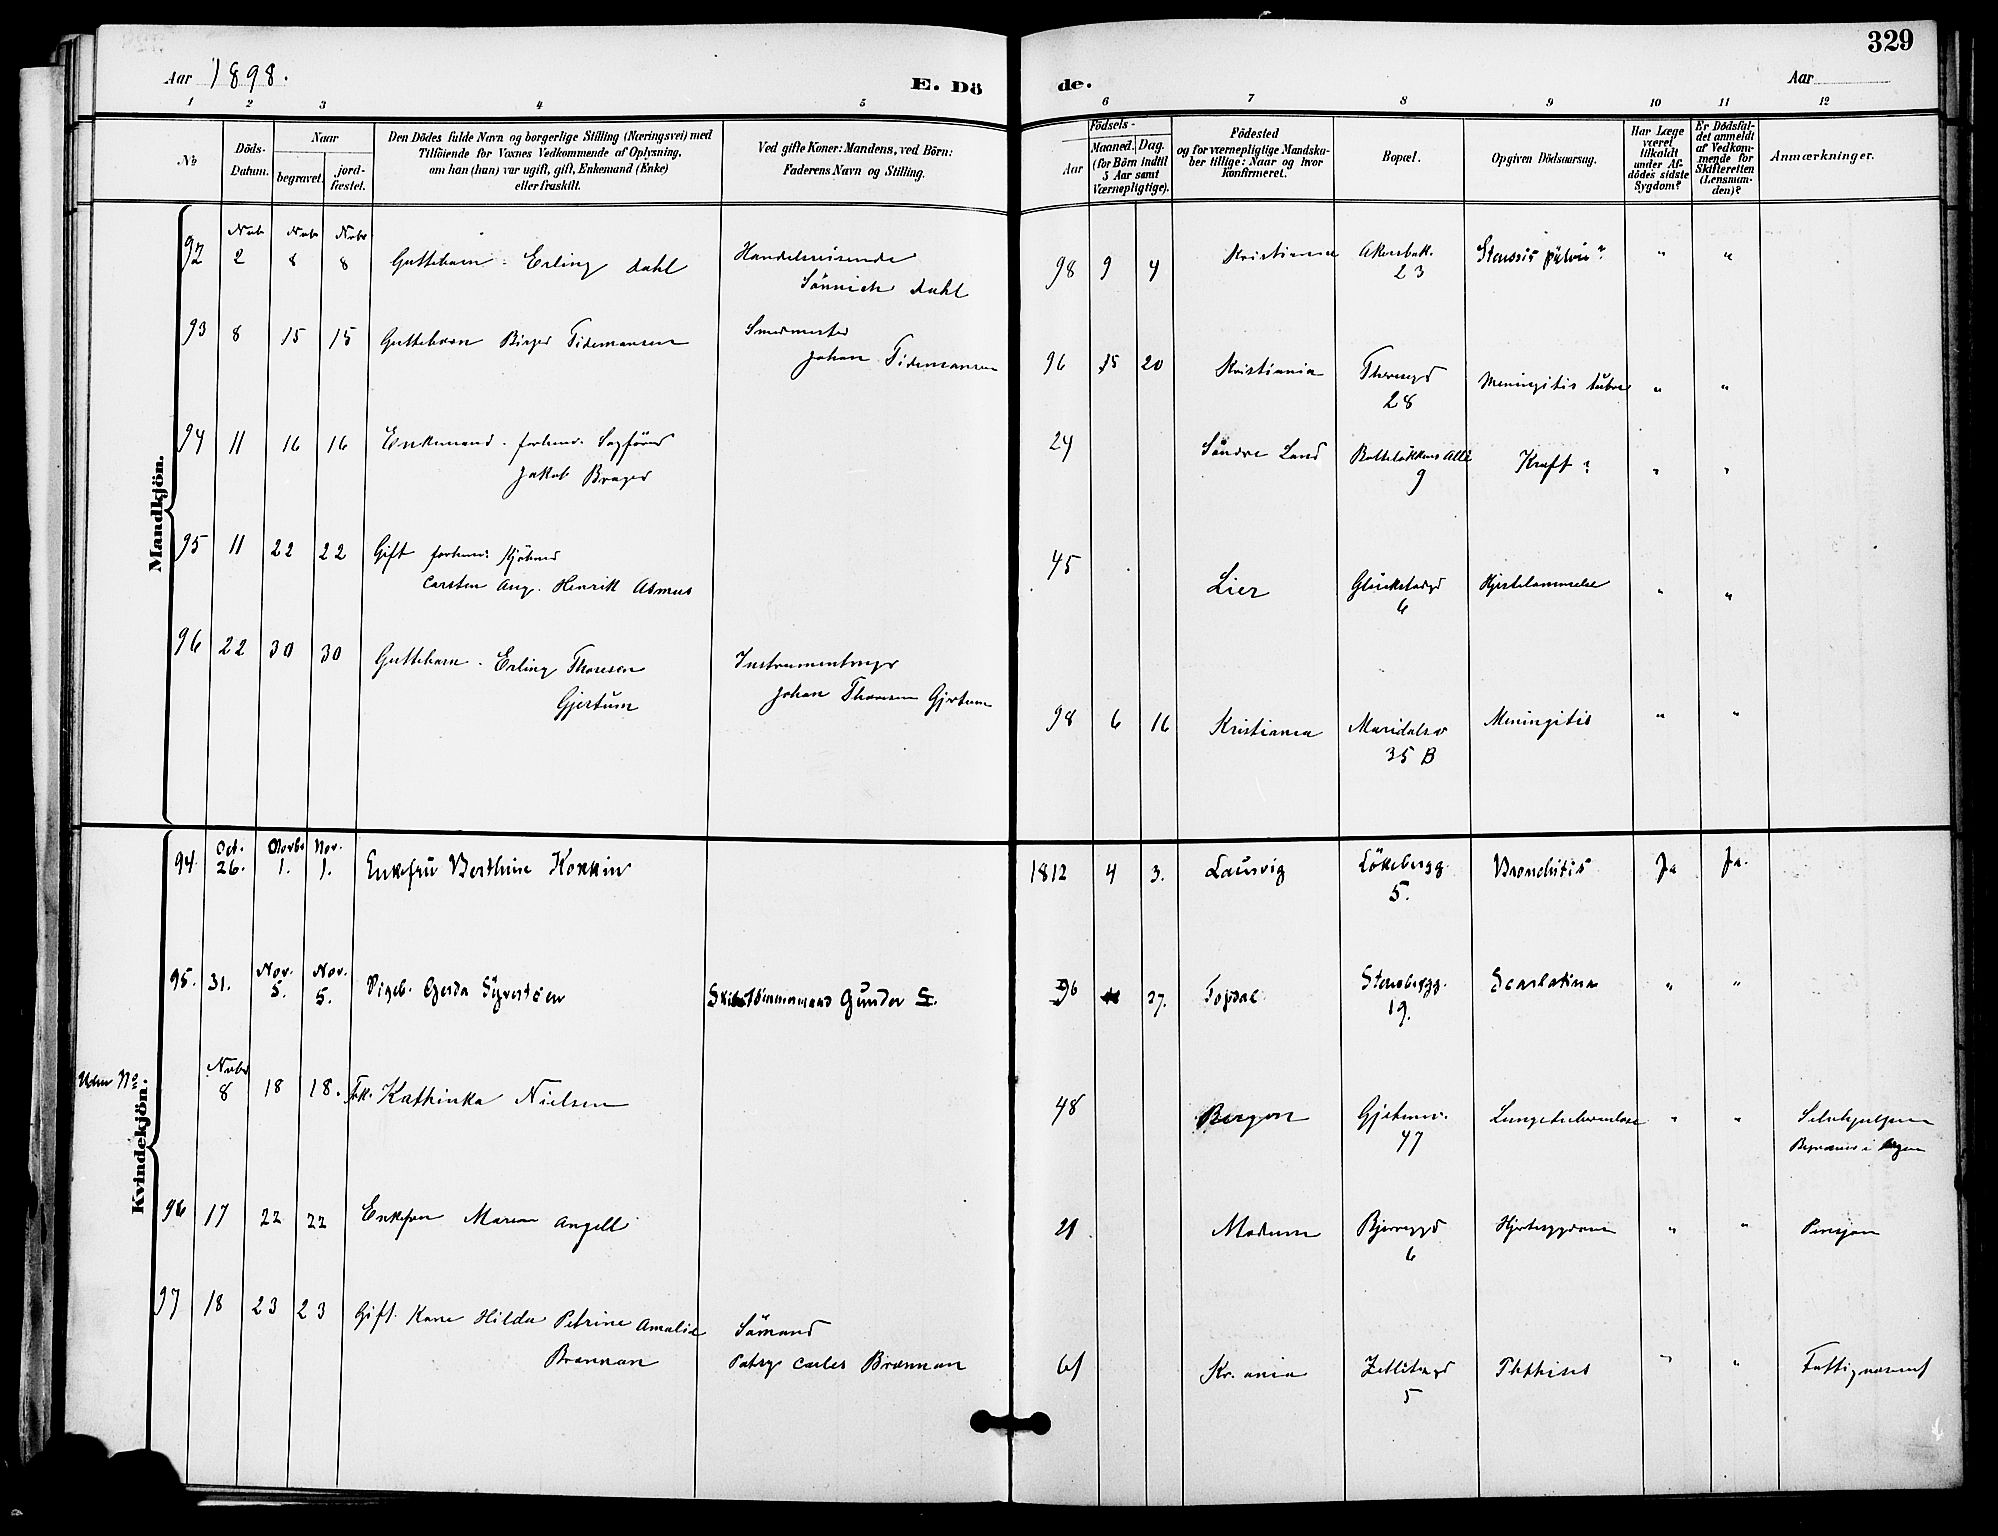 329
Aar 1898.
E. Dö de.
Aar
1 2 3 4 5 6 7 8 9 10 11 12
No
Döds-
Datum.
Naar
begravet.
jord-
fæstet.
Den Dödes fulde Navn og borgerlige Stilling (Næringsvei) med
Tilföiende for Voxnes Vedkommende af Oplysning,
om han (hun) var ugift, gift, Enkemand (Enke)
eller fraskilt.
Ved gifte Koner: Mandens, ved Börn:
Faderens Navn og Stilling.
Födsels-
Aar
Maaned. Dag.
(for Börn indtil
5 Aar samt
Værnepligtige).
Födested
og for værnepligtige Mandska-
ber tillige: Naar og hvor
konfirmeret.
Bopæl.
Opgiven Dödsaarsag.
Har Læge
været
tilkaldt
under Af-
dödes sidste
Sygdom?
Er Dödsfal-
det anmeldt
af Vedkom-
mende for
Skifteretten
(Lensman-
den)?
Anmærkninger.
Mandkjön.
Nvbr Nvbr Nvbr
92 2 8 8 Guttebarn. Erling Dahl Handelsreisende
Sönnich Dahl
98 9 4 Kristiania Akersbak.
23
" "
93 8 15 15 Guttebarn Birger Tidemansen Smedmester
Johan Tidemansen
96 20 Kristiania Theresegd
28
Meningitis tuberc " "
94 11 16 16 Enkemand. forhenv. Sagförer
Jakob Brager
24 Söndre Land Balteløkkens Allé
9
Kræft ? " "
95 11 22 22 Gift forhenv. Kjöbmd
Carsten Aug. Henrik Asmus
45 Lier Glückstadgd
6
Hjertelammelse " "
96 22 30 30 Guttebarn. Erling Thoresen
Gjertum
Instrumentmager
Johan Thoresen Gjertum
98 6 16 Kristiania Maridalsv
35 B
Meningitis " "
Kvindekjön.
94. Oct. 26. Novbr 1. Nov. 1. Enkefru Berthine Kokkin
1812 4 3. Laurvig Lökkebergg.
5.
Bronchitis Ja Ja.
95. 31. Nov. 5. Nov. 5. Pigeb. Gerda Syvertsen Skibstömmermand Gunder S.
96 27. Topdal Stensbergg.
19.
Scarlatina " "
Uden No. Nvbr 8 18 18. Frk. Kathinka Nielsen
48 Bergen Gjetemv.
47
Lungetuberculose " " Selvhjulpen
Begraves i Bergen
96 17 22 22 Enkefru Maren Angell
21 Modum Bjerregd
6
Hjertesygdom " " Pensjon
97 18 23 23 Gift Kone Hilda Petrine Amalie
Brannan
Sömand
Patry Carles Brannan
61 Kr.ania Zetlitzgd
5
Phthisis " " Fattigvæsenet